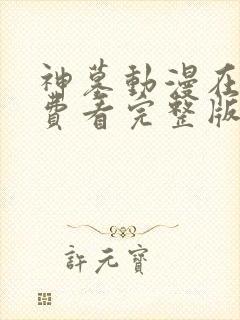 神墓動漫在
費看完整版
許元寶